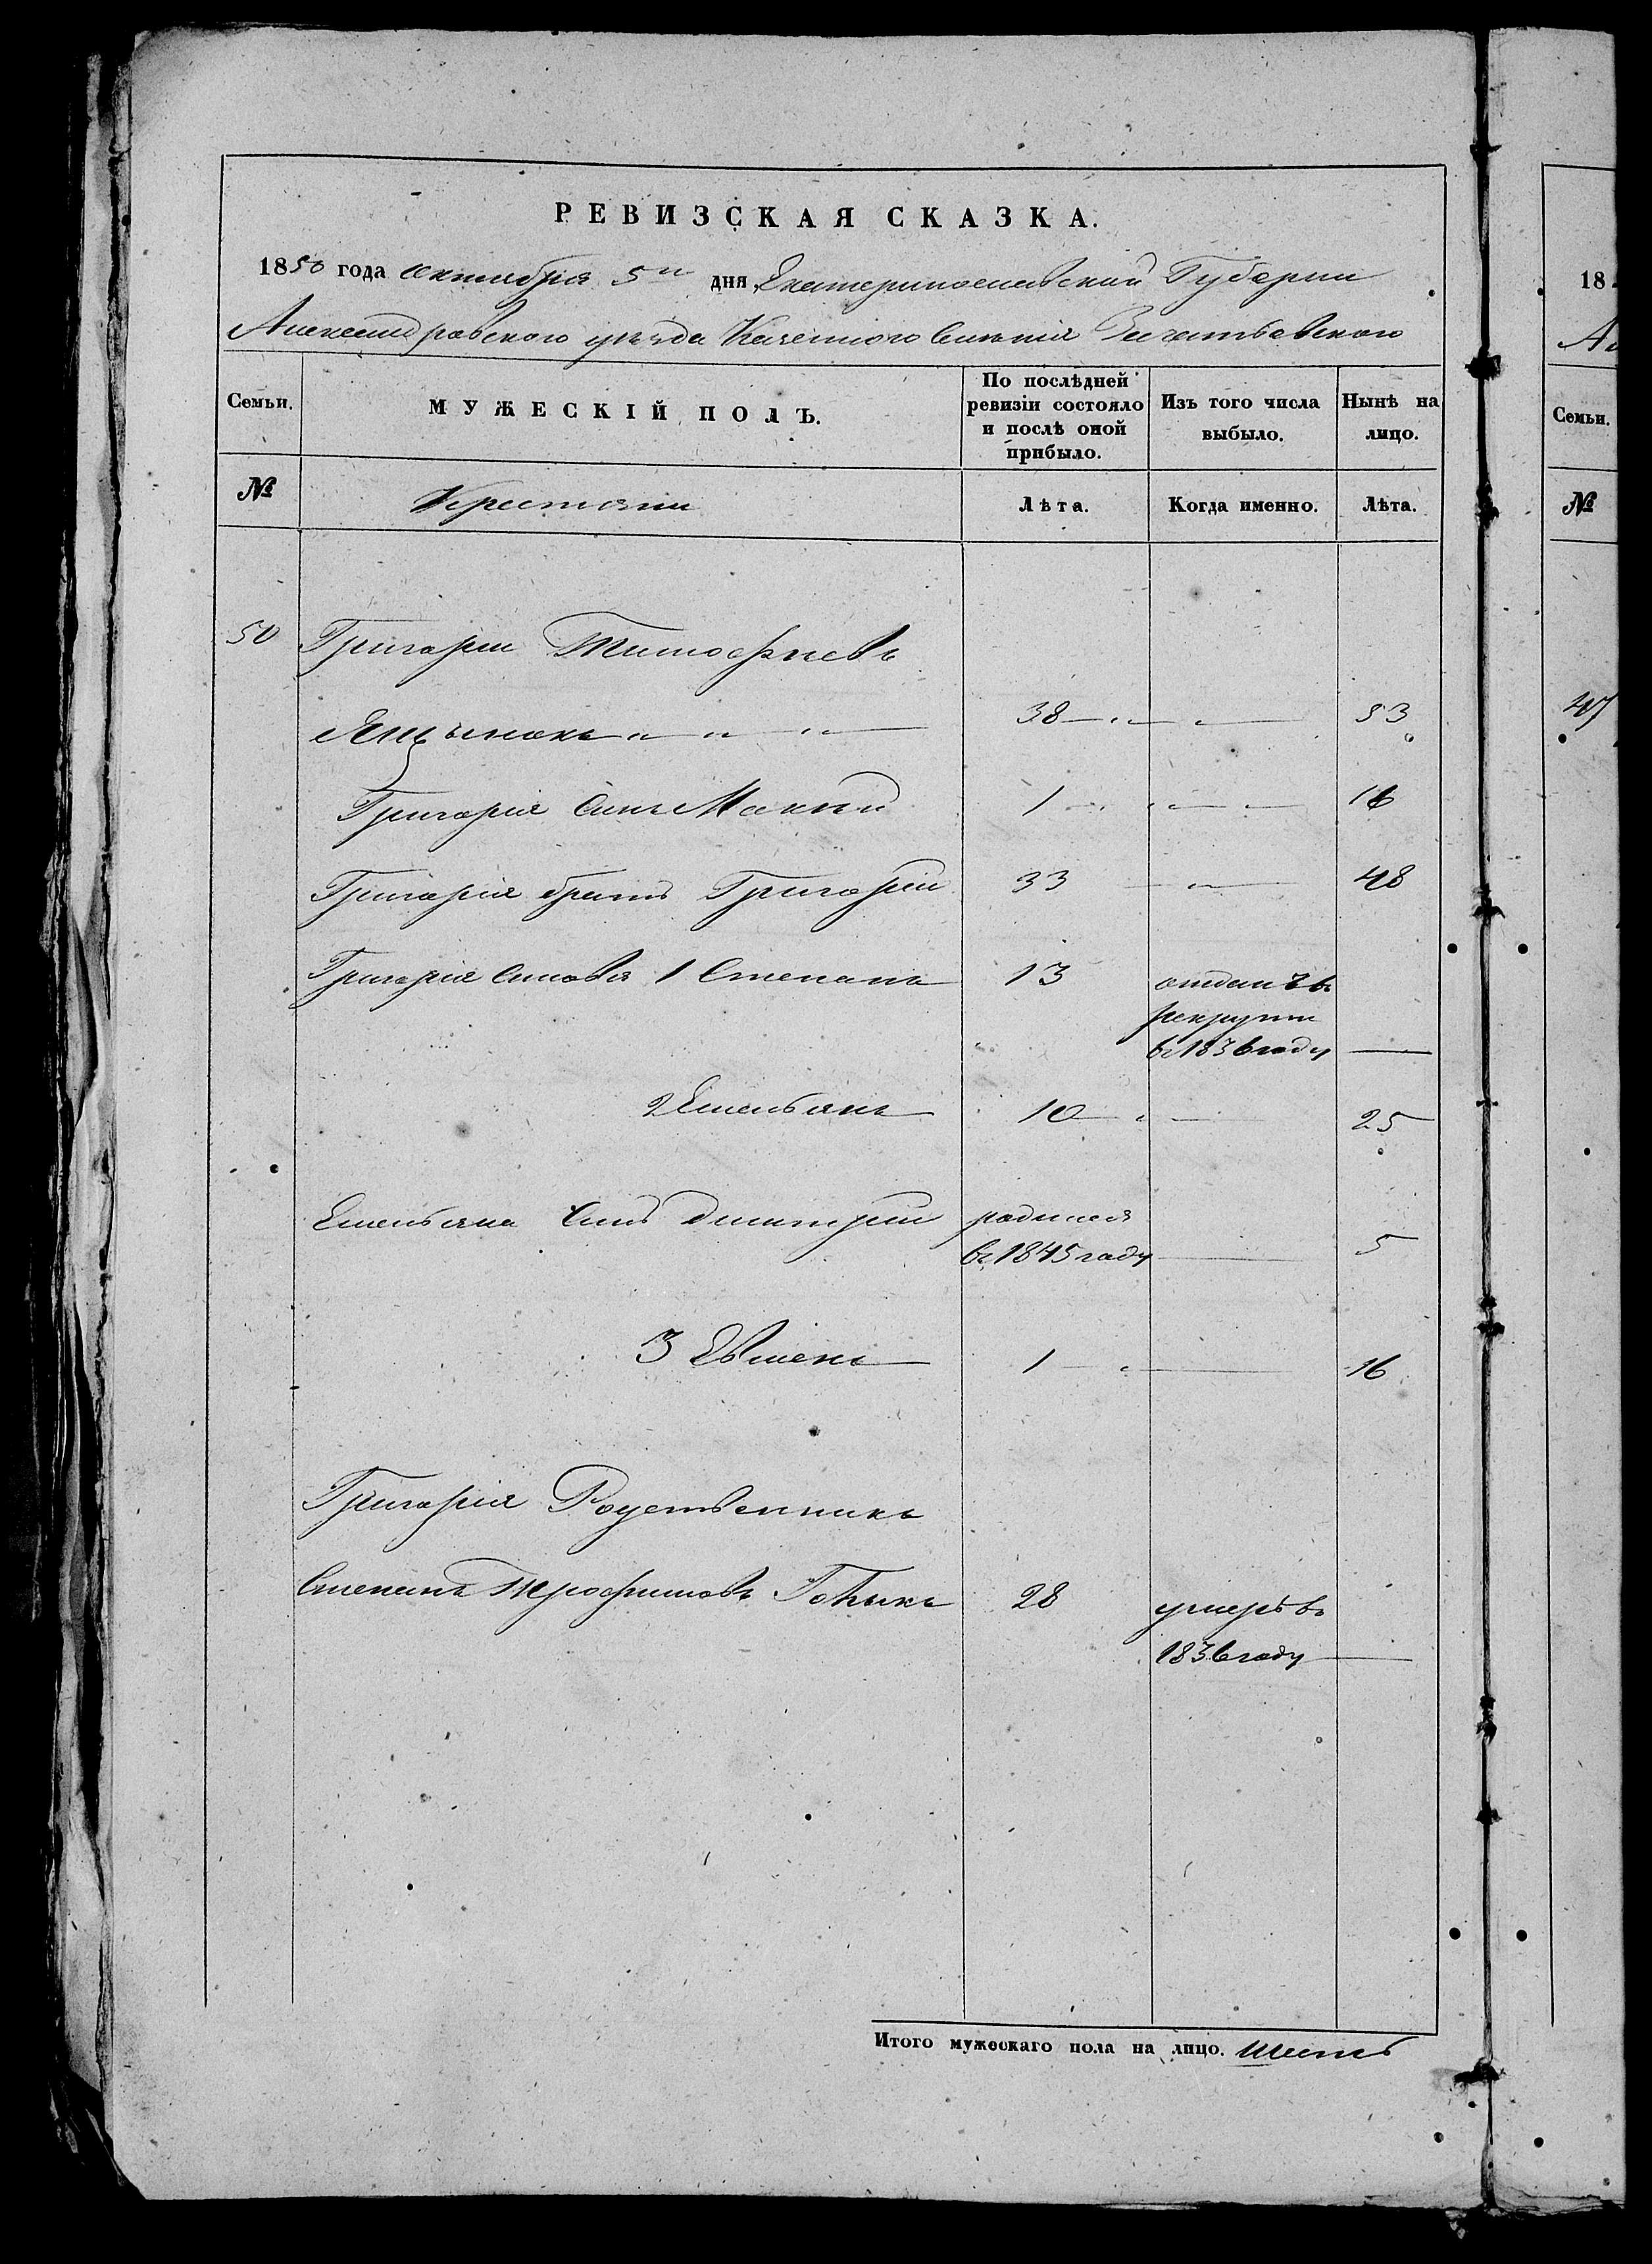 РЕВИЗСКАЯ СКАЗКА.
1850 года октября 5го дня Екатеринославской Губернии
Александровского уезда Казенного Селения Зачатьевского
Семьи. МУЖЕСКІЙ ПОЛЪ. По послѣдней ревизіи состояло и послѣ оной прибыло. Изъ того числа выбыло. Нынѣ на лицо.
№ Крестьяни Лѣта. Когда именно. Лѣта.
50 Григории Тимофеевъ
38 53
Григорія сынъ Мокий 1 16
Григорія братъ Григорій 33 48
Григорія Сыновья 1 Степанъ 13 отданъ въ
рекруты
въ 1836 году
2 Емельянъ 10 25
Емельяна Сынъ Дмитрий родился
въ 1845 году 5
3 Евменъ 1 16
Григорія Родственникъ
Степанъ Трофимовъ 28 умеръ въ
1836 году
Итого мужескаго пола на лицо. Шесть
18
Семьи.
№
47